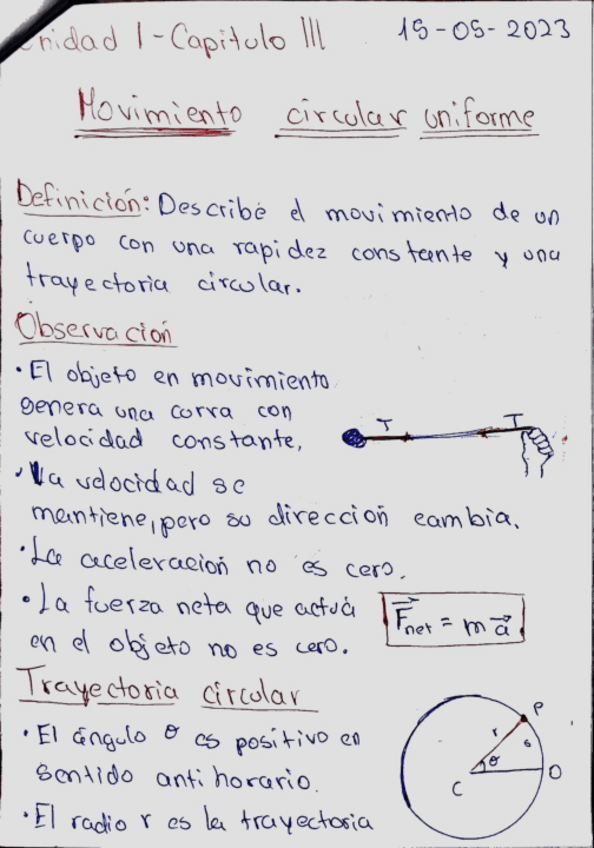 Unidad 1 - Capitulo III
15-05-2023
Movimiento circular uniforme
Definición: Describe el movimiento de un
cuerpo con una rapidez constante y una
trayectoria circular.
Observación
• El objeto en movimiento
genera una curva con
velocidad constante,
T T
• La velocidad se
mantiene, pero su dirección cambia.
• La aceleración no es cero.
• La fuerza neta que actuá
en el objeto no es cero.
F⃗net = m a⃗
Trayectoria circular
• El ángulo θ es positivo en
sentido anti horario.
• El radio r es la trayectoria
P
r
s
θ
C
O